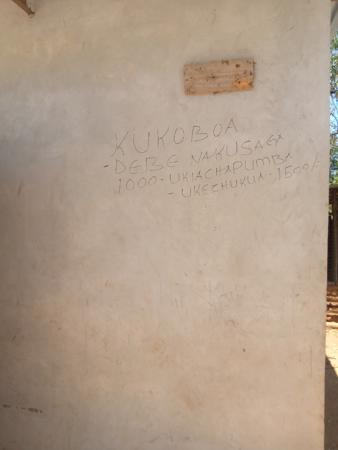 KUKOBOA
- DEBE NAKUSAGA
1000 - UKIACHAPUMBA
- UKECHUKUA - 1500/=